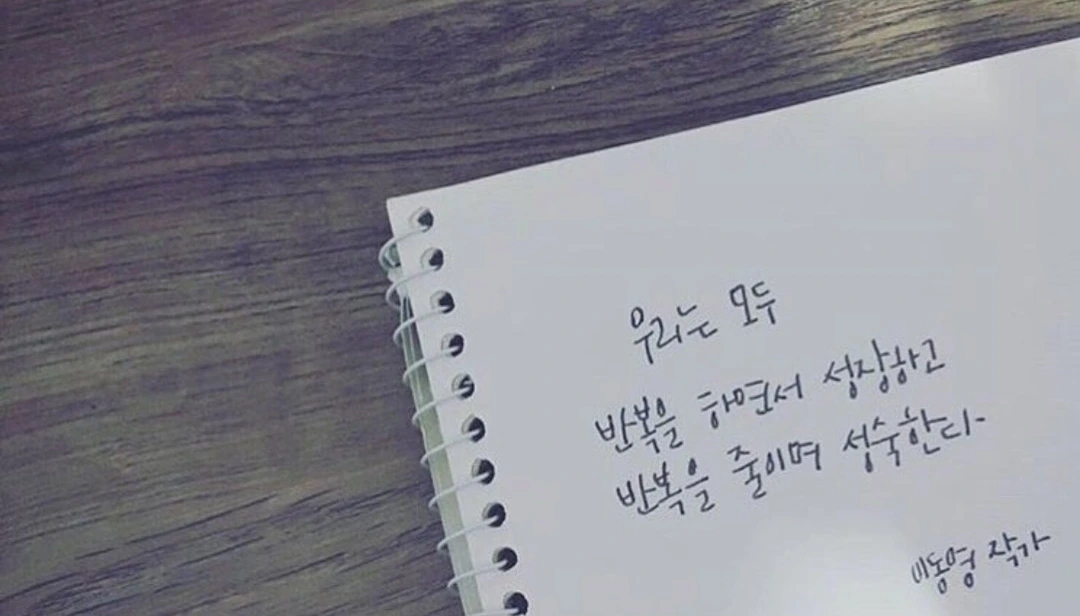 우리는 모두
반복을 하면서 성장하고
반복을 줄이며 성숙한다-
이동영 작가